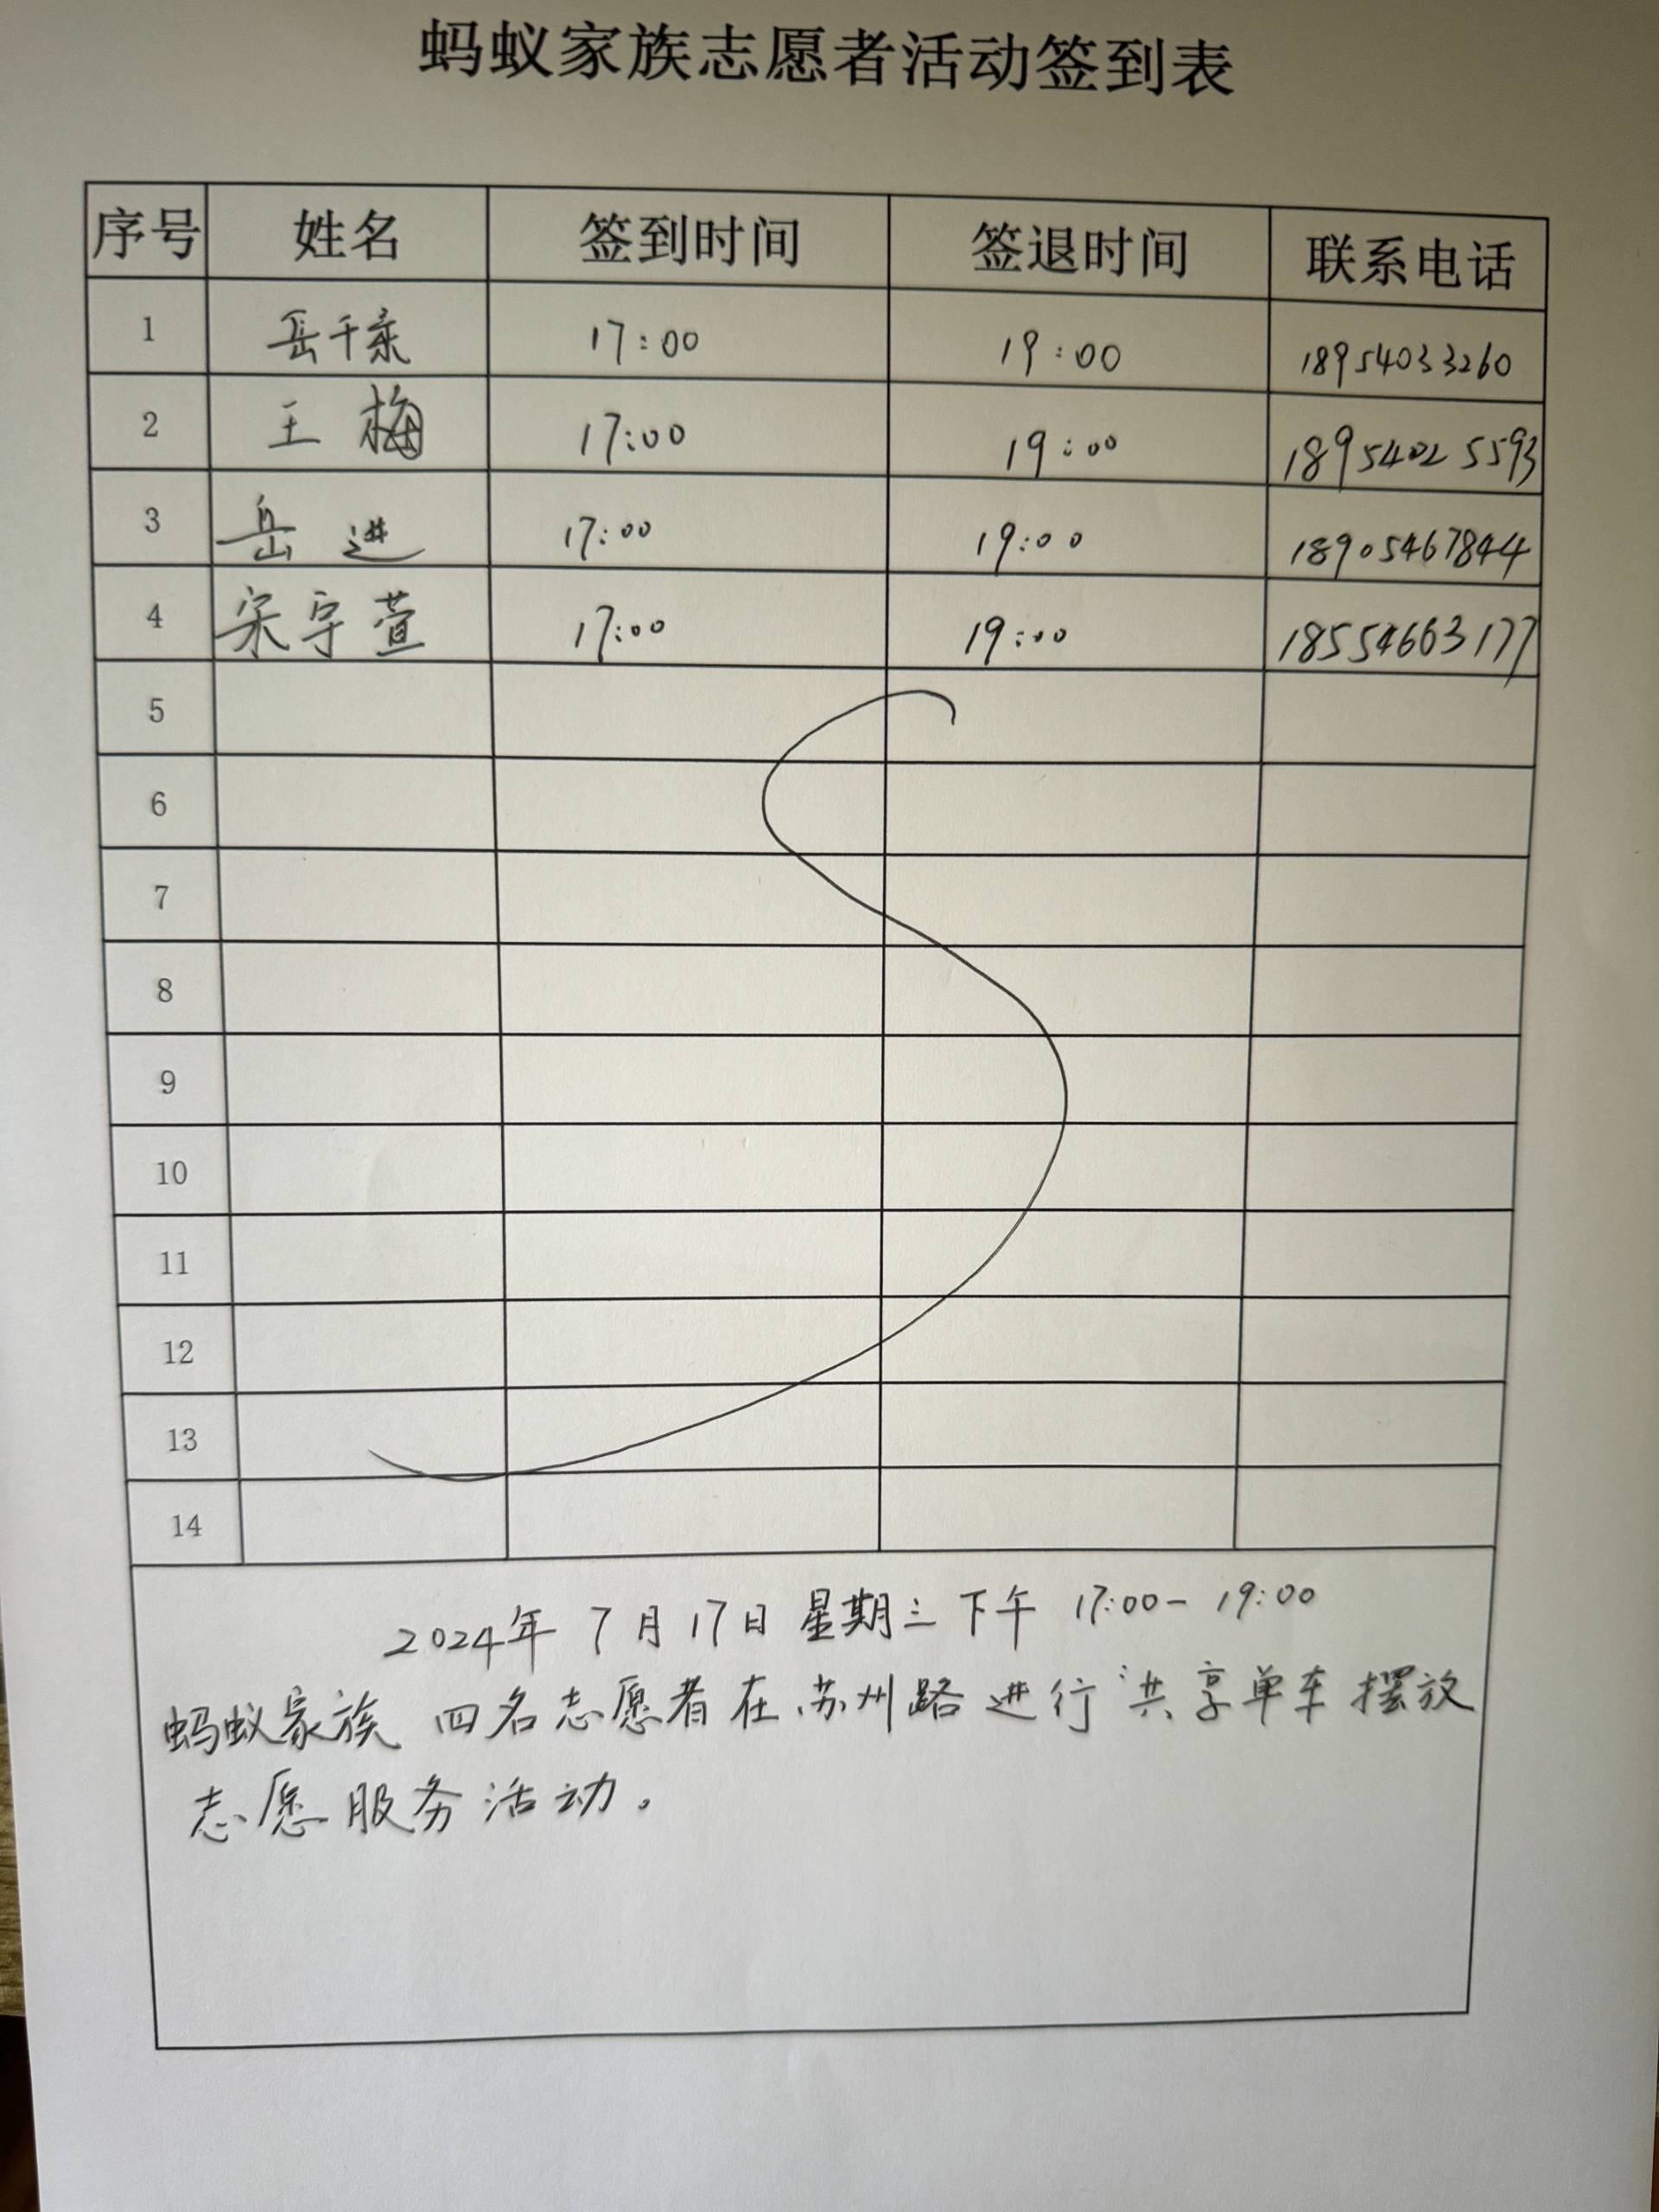 蚂蚁家族志愿者活动签到表
序号 姓名 签到时间 签退时间 联系电话
1 岳千 17:00 19:00 18954033260
2 王梅 17:00 19:00 18954025593
3 岳进 17:00 19:00 18905467844
4 宋宇萱 17:00 19:00 18554663177
5
6
7
8
9
10
11
12
13
14
2024年7月17日星期三下午 17:00-19:00
蚂蚁家族四名志愿者在苏州路进行“共享单车摆放
志愿服务活动。